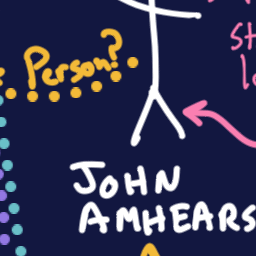 Person?
JOHN
AMHEARS